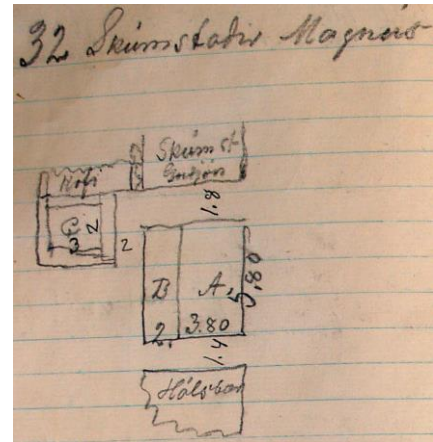 32 Skúmstaðir Magnús
Skúmst
Guðjón
Kofi
1.8
C
2
3
2
B
A
5.80
2.
3.80
1.4
Hólsbær